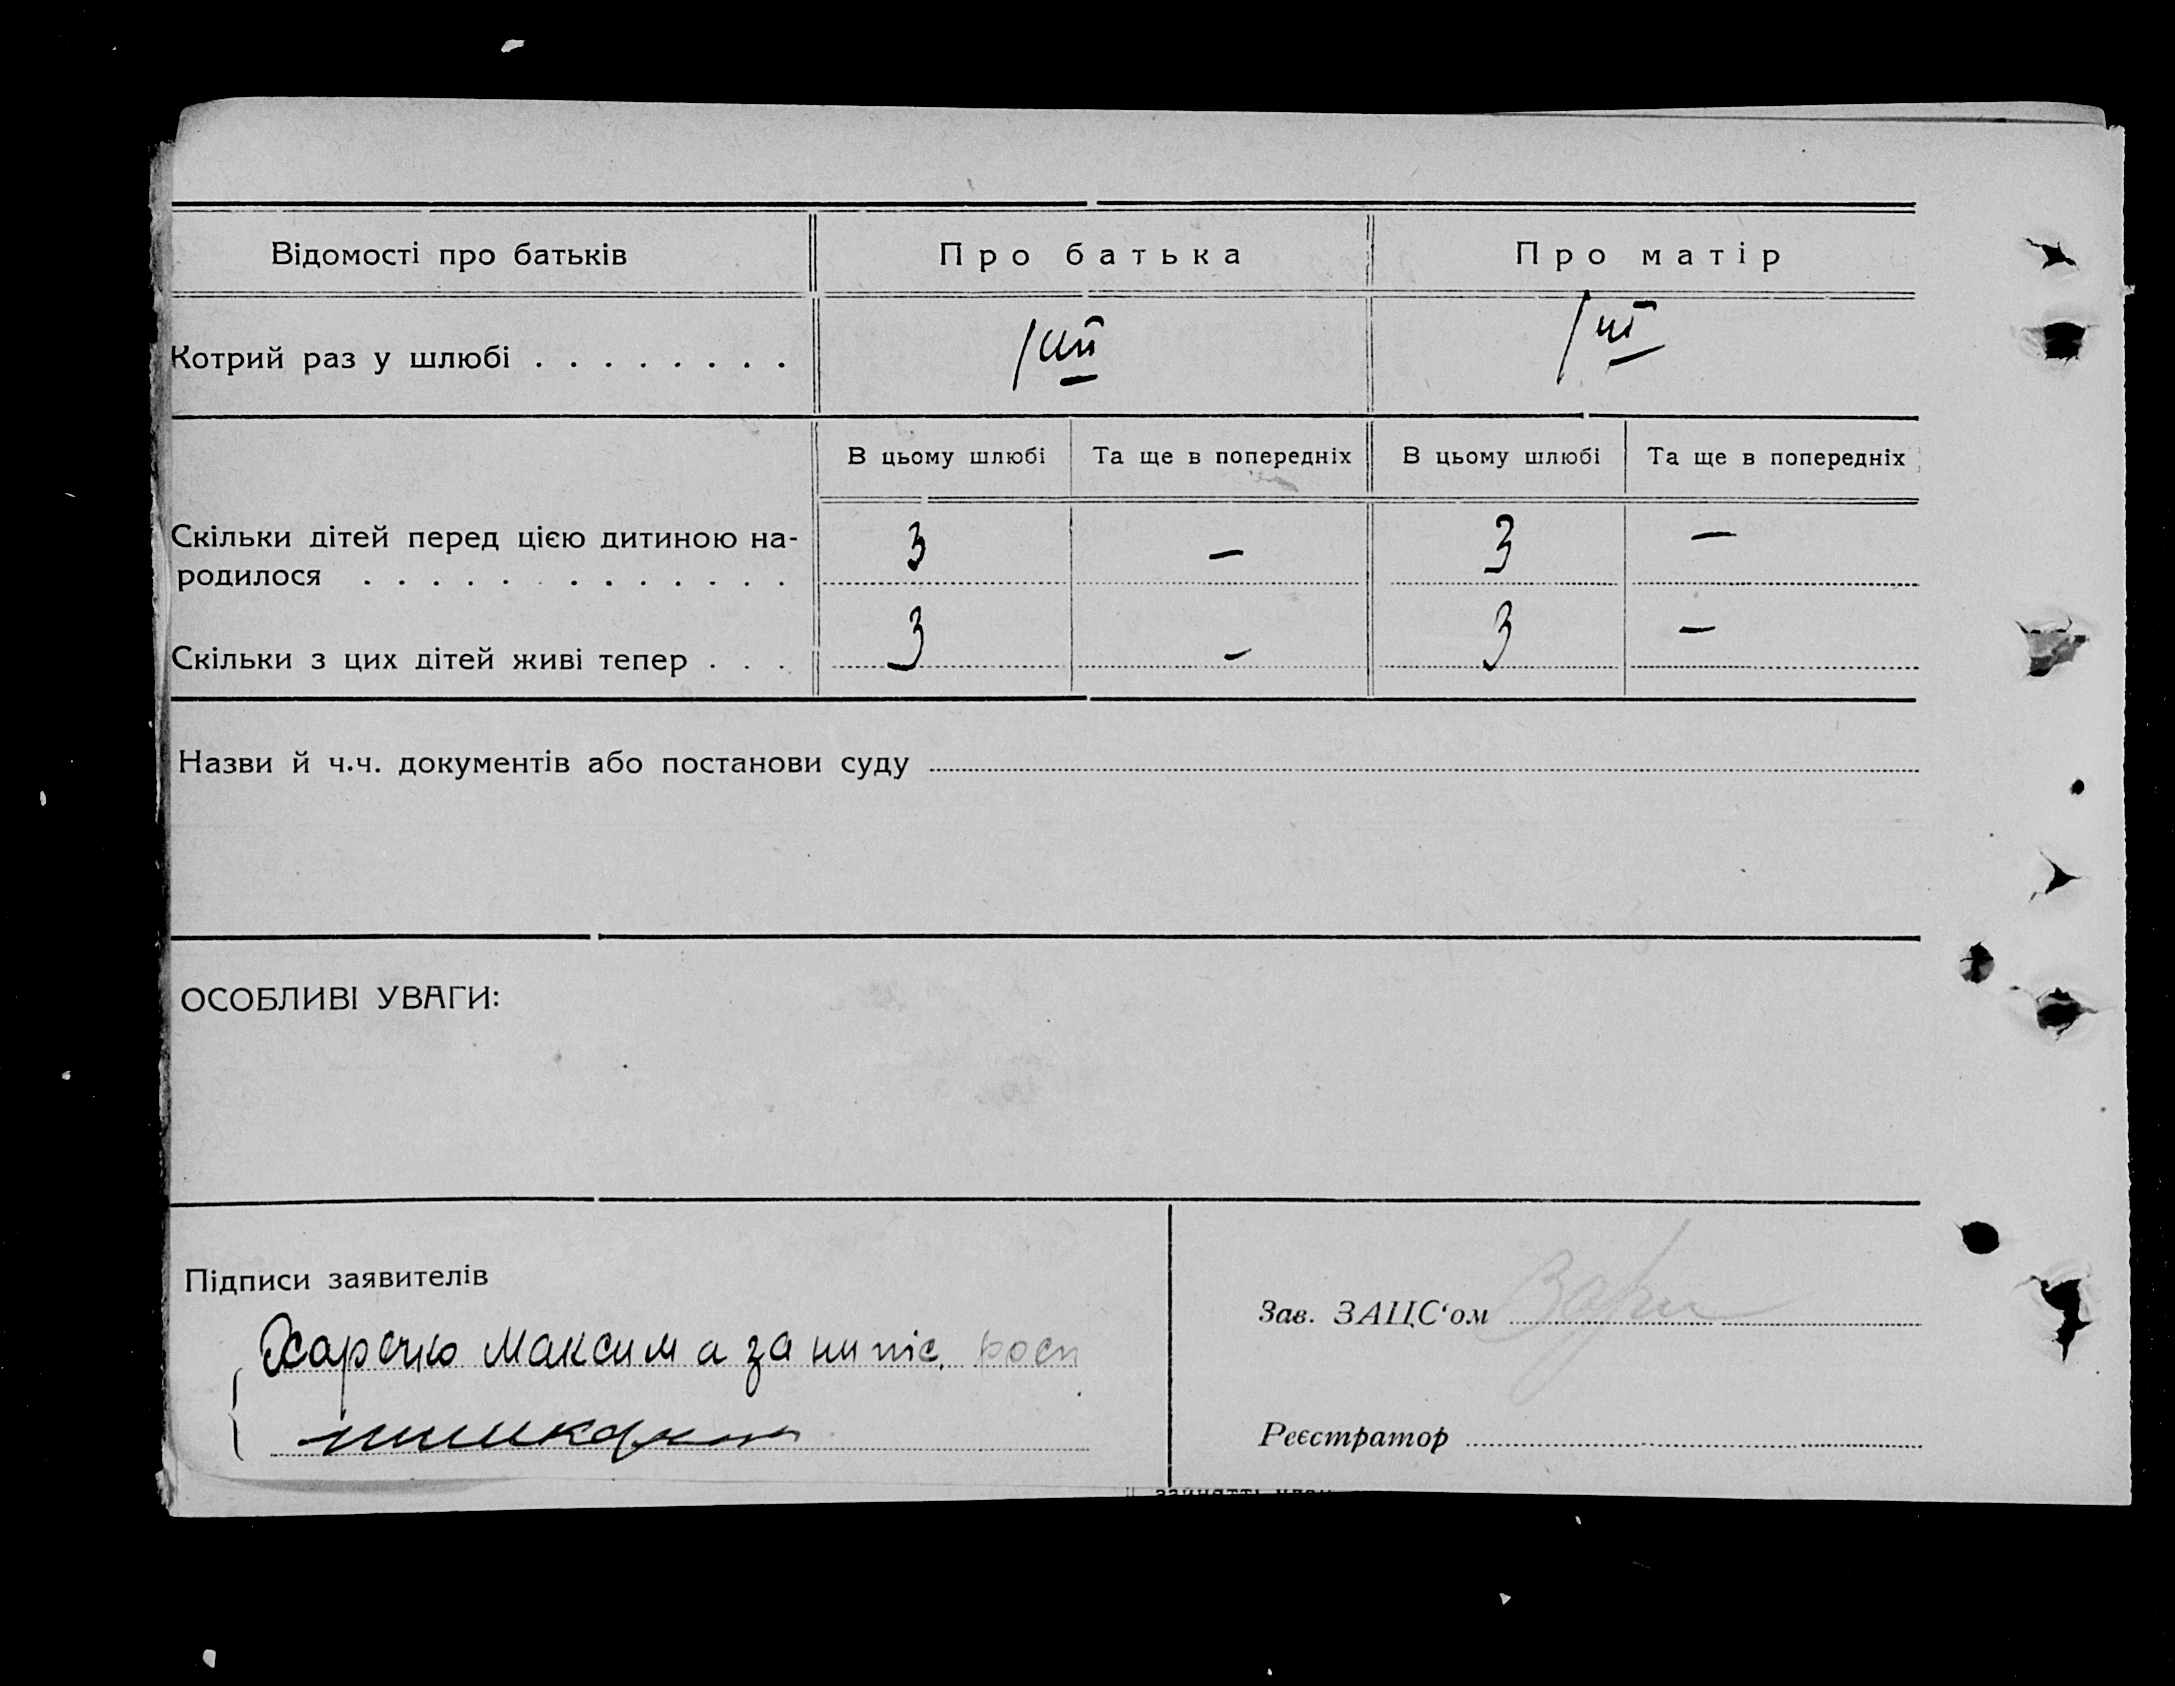 Відомості про батьків Про батька Про матір
Котрий раз у шлюбі . . . . . . . .
В цьому шлюбі Та ще в попередніх В цьому шлюбі Та ще в попередніх
Скільки дітей перед цією дитиною на-
родилося . . . . . . . . . . . . . 3 — 3 —
Скільки з цих дітей живі тепер . . . 3 - 3 —
Назви й ч.ч. документів або постанови суду
ОСОБЛИВІ УВАГИ:
Підписи заявителів
Зав. ЗАЦС‘ом
Максим а за
Реєстратор